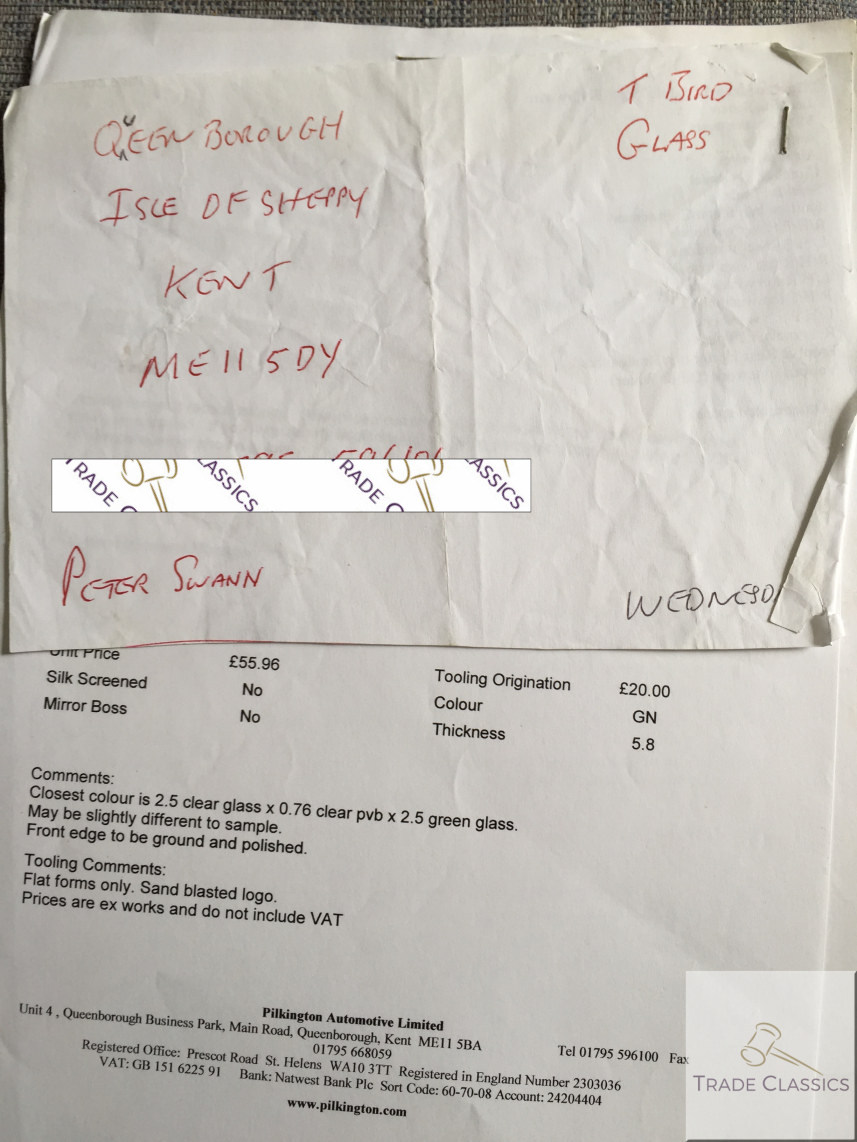 QUEENBOROUGH
ISLE OF SHEPPY
KENT
ME11 5DY
T BIRD
GLASS
TRADE CLASSICS
PETER SWANN
WEDNESD
Unit Price £55.96
Silk Screened No
Mirror Boss No
Tooling Origination £20.00
Colour GN
Thickness 5.8
Comments:
Closest colour is 2.5 clear glass x 0.76 clear pvb x 2.5 green glass.
May be slightly different to sample.
Front edge to be ground and polished.
Tooling Comments:
Flat forms only. Sand blasted logo.
Prices are ex works and do not include VAT
Pilkington Automotive Limited
Unit 4 , Queenborough Business Park, Main Road, Queenborough, Kent ME11 5BA Tel 01795 596100 Fax
01795 668059
Registered Office: Prescot Road St. Helens WA10 3TT Registered in England Number 2303036
VAT: GB 151 6225 91 Bank: Natwest Bank Plc Sort Code: 60-70-08 Account: 24204404
www.pilkington.com
TRADE CLASSICS